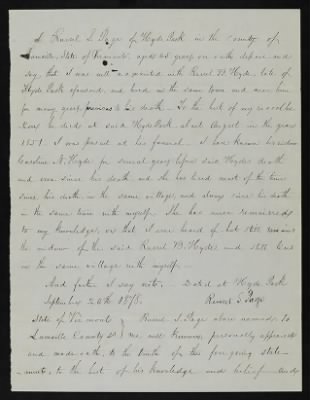 I Russel S. Page of Hyde Park in the County of
Lamoille, State of Vermont, aged 65 years on oath depose and
say, that I was well acquainted with Russel B. Hyde, late of
Hyde Park deceased, and lived in the same town and near him
for many years previous to his death. To the best of my recollec
tions he died at said Hyde Park, about August in the year
1851. I was present at his funeral. I have known his widow
Caroline N. Hyde for several years before said Hyde's death
and ever since his death and she has lived most of the time
since his death in the same village, and always since his death
in the same town with myself. She has never remarried
to my knowledge, or that I ever heard of but still remains
the widow of the said Russel B. Hyde and still lives
in the same village with myself.
And further I say not. Dated at Hyde Park
September 20th 1878. Russel S. Page
State of Vermont Russel S. Page above named, to
Lamoille County SS me well known, personally appeared
and made oath, to the truth of the foregoing state-
-ments, to the best of his knowledge and belief. And